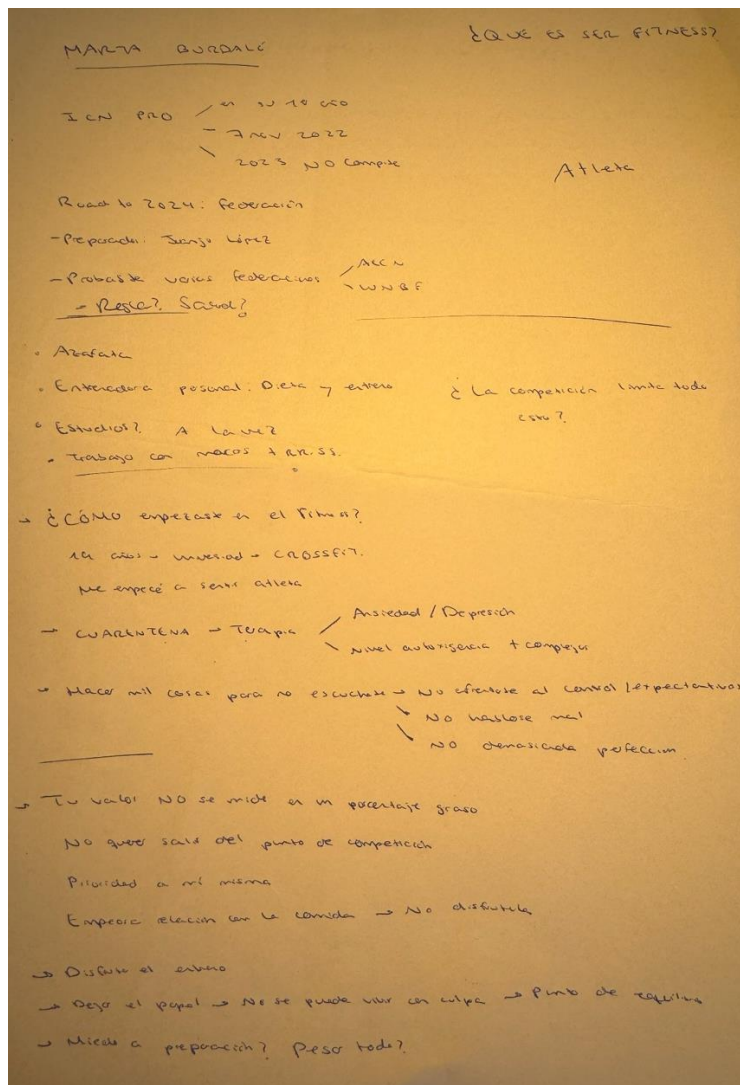 ¿QUE ES SER FITNESS?
MARTA BURDALÓ
ICN PRO
en su 1º año
- 7 nov 2022
2023 NO compite
Atleta
Road to 2024: federación
- Preparador: Juanjo López
- Probaste varias federaciones
AECN
WNBF
- Regla? Salud?
• Azafata
• Entrenadora personal: Dieta y entreno
¿La competición limita todo
esto?
• Estudios? A la vez
• Trabajo con marcas + RR.SS.
→ ¿CÓMO empezaste en el Fitness?
19 años → universidad → CROSSFIT.
Me empecé a sentir atleta
→ CUARENTENA → Terapia
Ansiedad / Depresión
Nivel autoexigencia + complejos
→ Hacer mil cosas para no escucharse → No aferrarse al control / expectativas
No hablarse mal
No demasiada perfección
→ Tu valor NO se mide en un porcentaje graso
No querer salir del punto de competición
Prioridad a mí misma
Empeora relación con la comida → No disfrutala
→ Disfruta el entreno
→ Dejo el papel → No se puede vivir con culpa → Punto de equilibrio
→ Miedo a preparación? Pesar todo?